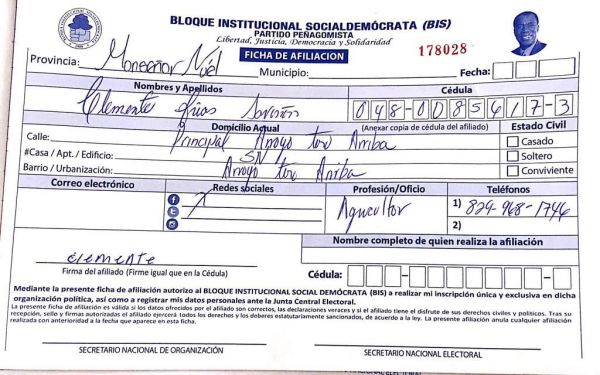 BLOQUE INSTITUCIONAL SOCIALDEMÓCRATA (BIS)
PARTIDO PEÑAGOMISTA
Libertad, Justicia, Democracia y Solidaridad
FICHA DE AFILIACION
178028
Provincia: Monseñor Nuel
Municipio:
Fecha:
Nombres y Apellidos
Cédula
Clemente
048-0085417-3
Domicilio Actual
(Anexar copia de cédula del afiliado)
Estado Civil
Calle: Principal Arroyo toro Arriba
Casado
#Casa / Apt. / Edificio: SN
Soltero
Barrio / Urbanización: Arroyo toro Arriba
Conviviente
Correo electrónico
Redes sociales
Profesión/Oficio
Teléfonos
Agricultor
1) 829-968-1746
2)
Nombre completo de quien realiza la afiliación
Clemente
Firma del afiliado (Firme igual que en la Cédula)
Cédula:
Mediante la presente ficha de afiliación autorizo al BLOQUE INSTITUCIONAL SOCIAL DEMÓCRATA (BIS) a realizar mi inscripción única y exclusiva en dicha
organización política, así como a registrar mis datos personales ante la Junta Central Electoral.
La presente ficha de afiliación es válida si los datos ofrecidos por el afiliado son correctos, las declaraciones veraces y si el afiliado tiene el disfrute de sus derechos civiles y políticos. Tras su
recepción, sello y firmas autorizadas el afiliado ejercerá todos los derechos y los deberes estatutariamente sancionados, de acuerdo a la ley. La presente afiliación anula cualquier afiliación
realizada con anterioridad a la fecha que aparece en esta ficha.
SECRETARIO NACIONAL DE ORGANIZACIÓN
SECRETARIO NACIONAL ELECTORAL